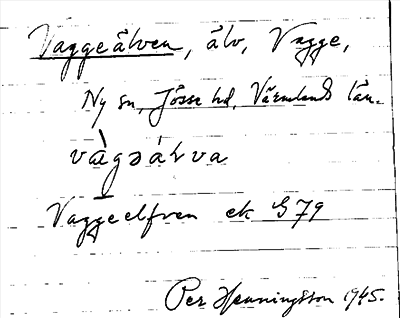 Vaggeälven, älv, Vagge,
Ny sn, Jösse hd, Värmlands län.
vàgəálva
Vaggeelfven ek G 79
Per Henningsson 1945.